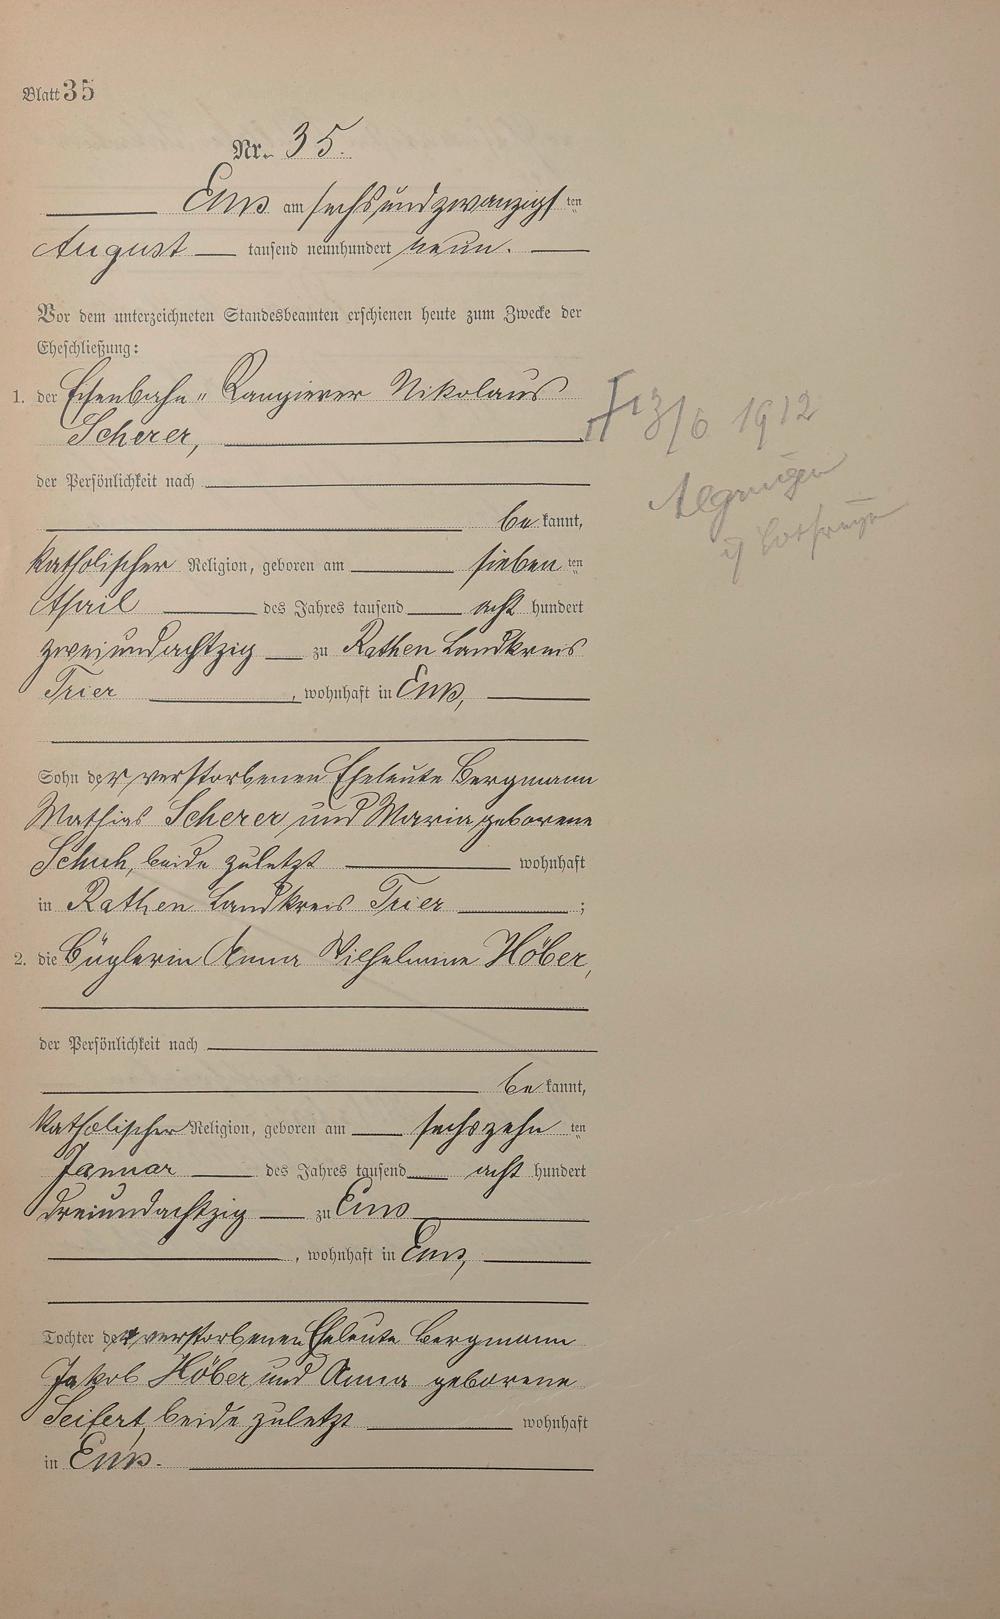 Blatt 35
Nr. 35.
Ems am sechsundzwanzigsten
August tausend neunhundert neun.
Vor dem unterzeichneten Standesbeamten erschienen heute zum Zwecke der
Eheschließung:
1. der Eisenbahn-Rangierer Nikolaus
Scherer,
der Persönlichkeit nach
be kannt,
katholischer Religion, geboren am sieben ten
April des Jahres tausend acht hundert
zweiundachtzig zu Rathen Landkreis
Trier, wohnhaft in Ems,
Sohn der verstorbenen Eheleute Bergmann
Mathias Scherer und Maria geborene
Schuh, beide zuletzt wohnhaft
in Rathen Landkreis Trier;
2. die Büglerin Anna Wilhelmine Höber,
der Persönlichkeit nach
be kannt,
katholischer Religion, geboren am sechszehn ten
Januar des Jahres tausend acht hundert
dreiundachtzig zu Ems
, wohnhaft in Ems,
Tochter der verstorbenen Eheleute Bergmann
Jakob Höber und Anna geborene
Seifert, beide zuletzt wohnhaft
in Ems.
3/6 1912
Algringen